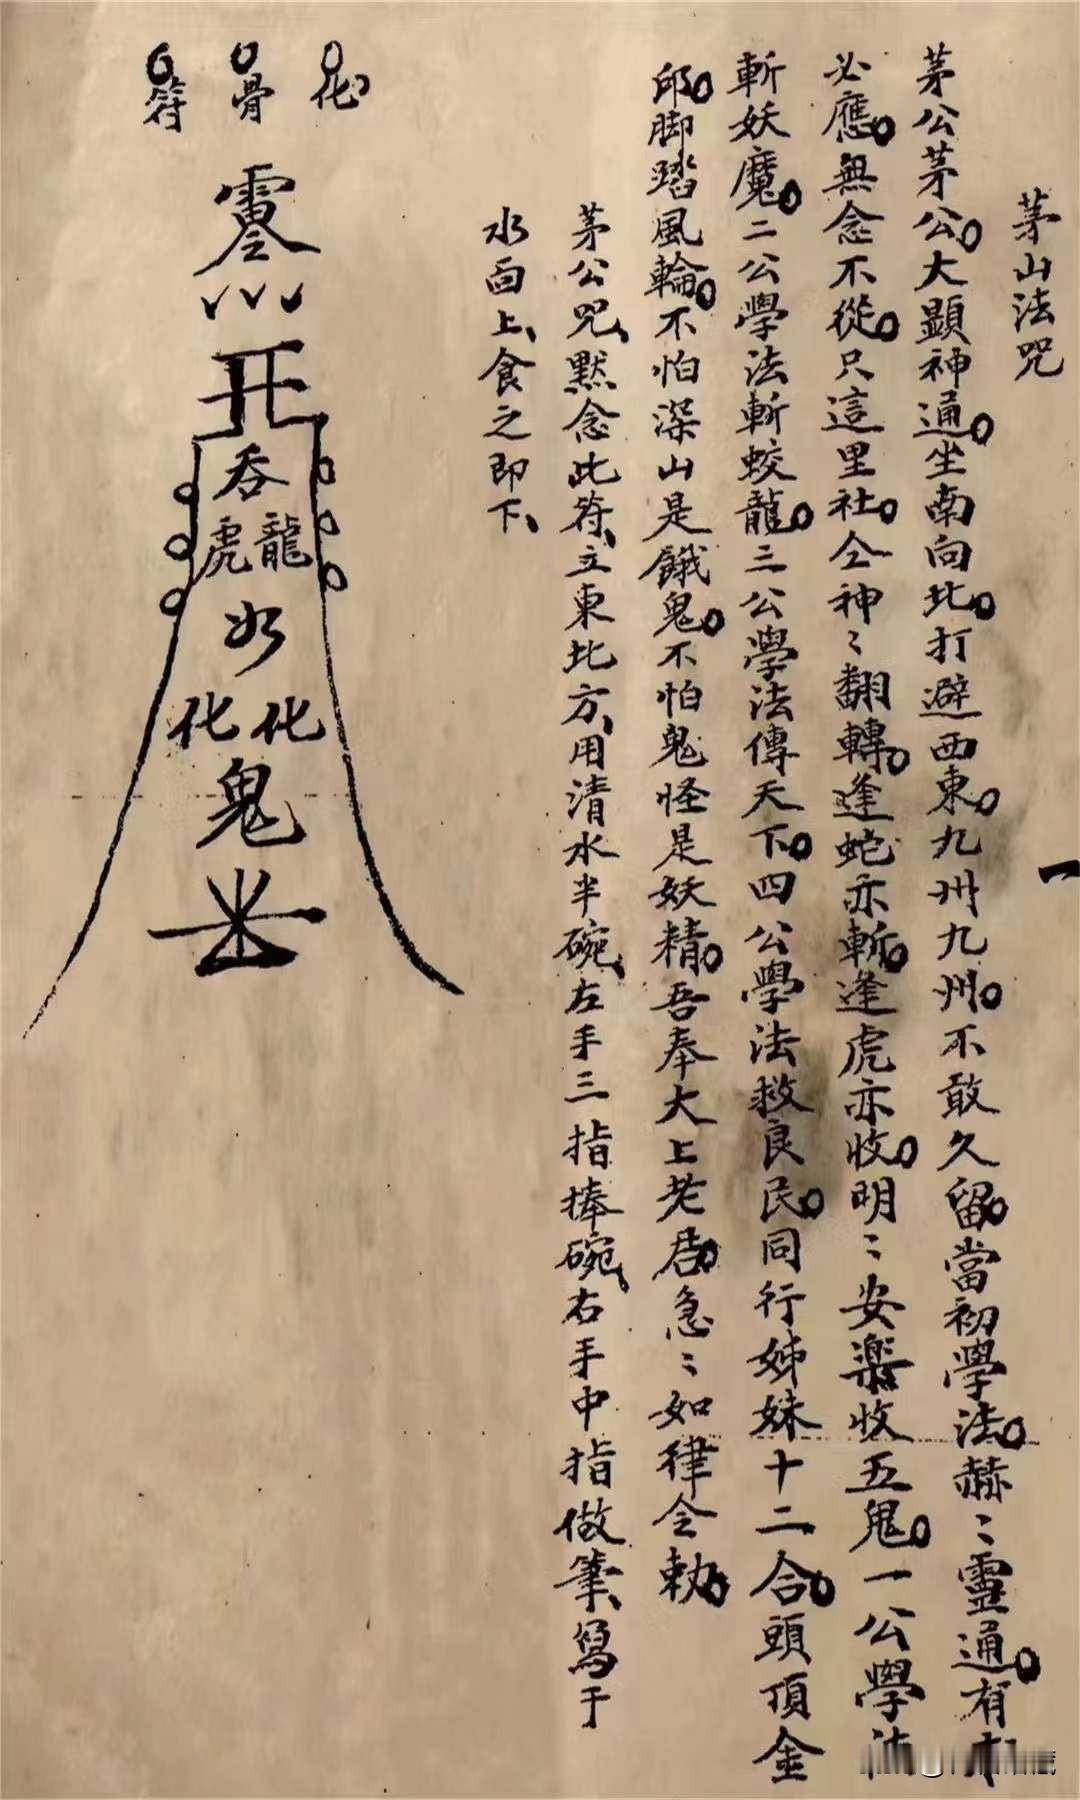 茅山法咒
茅公茅公。大顯神通。坐南向北。打避西東。九州九州。不敢久留。當初學法。赫〻靈通。有求
必應。無念不從。只這里社。仝神〻翻轉。逢蛇亦斬。逢虎亦收。明〻安樂收五鬼。一公學法
斬妖魔。二公學法斬蛟龍。三公學法傳天下。四公學法救良民。同行姊妹十二合。頭頂金
邱。脚踏風輪。不怕深山是餓鬼。不怕鬼怪是妖精。吾奉大上老君。急〻如律令勅。
茅公咒、默念此符、立東北方、用清水半碗、左手三指捧碗、右手中指做筆、寫于
水面上、食之即下、
化骨符
吞
龍虎
化化
鬼
一